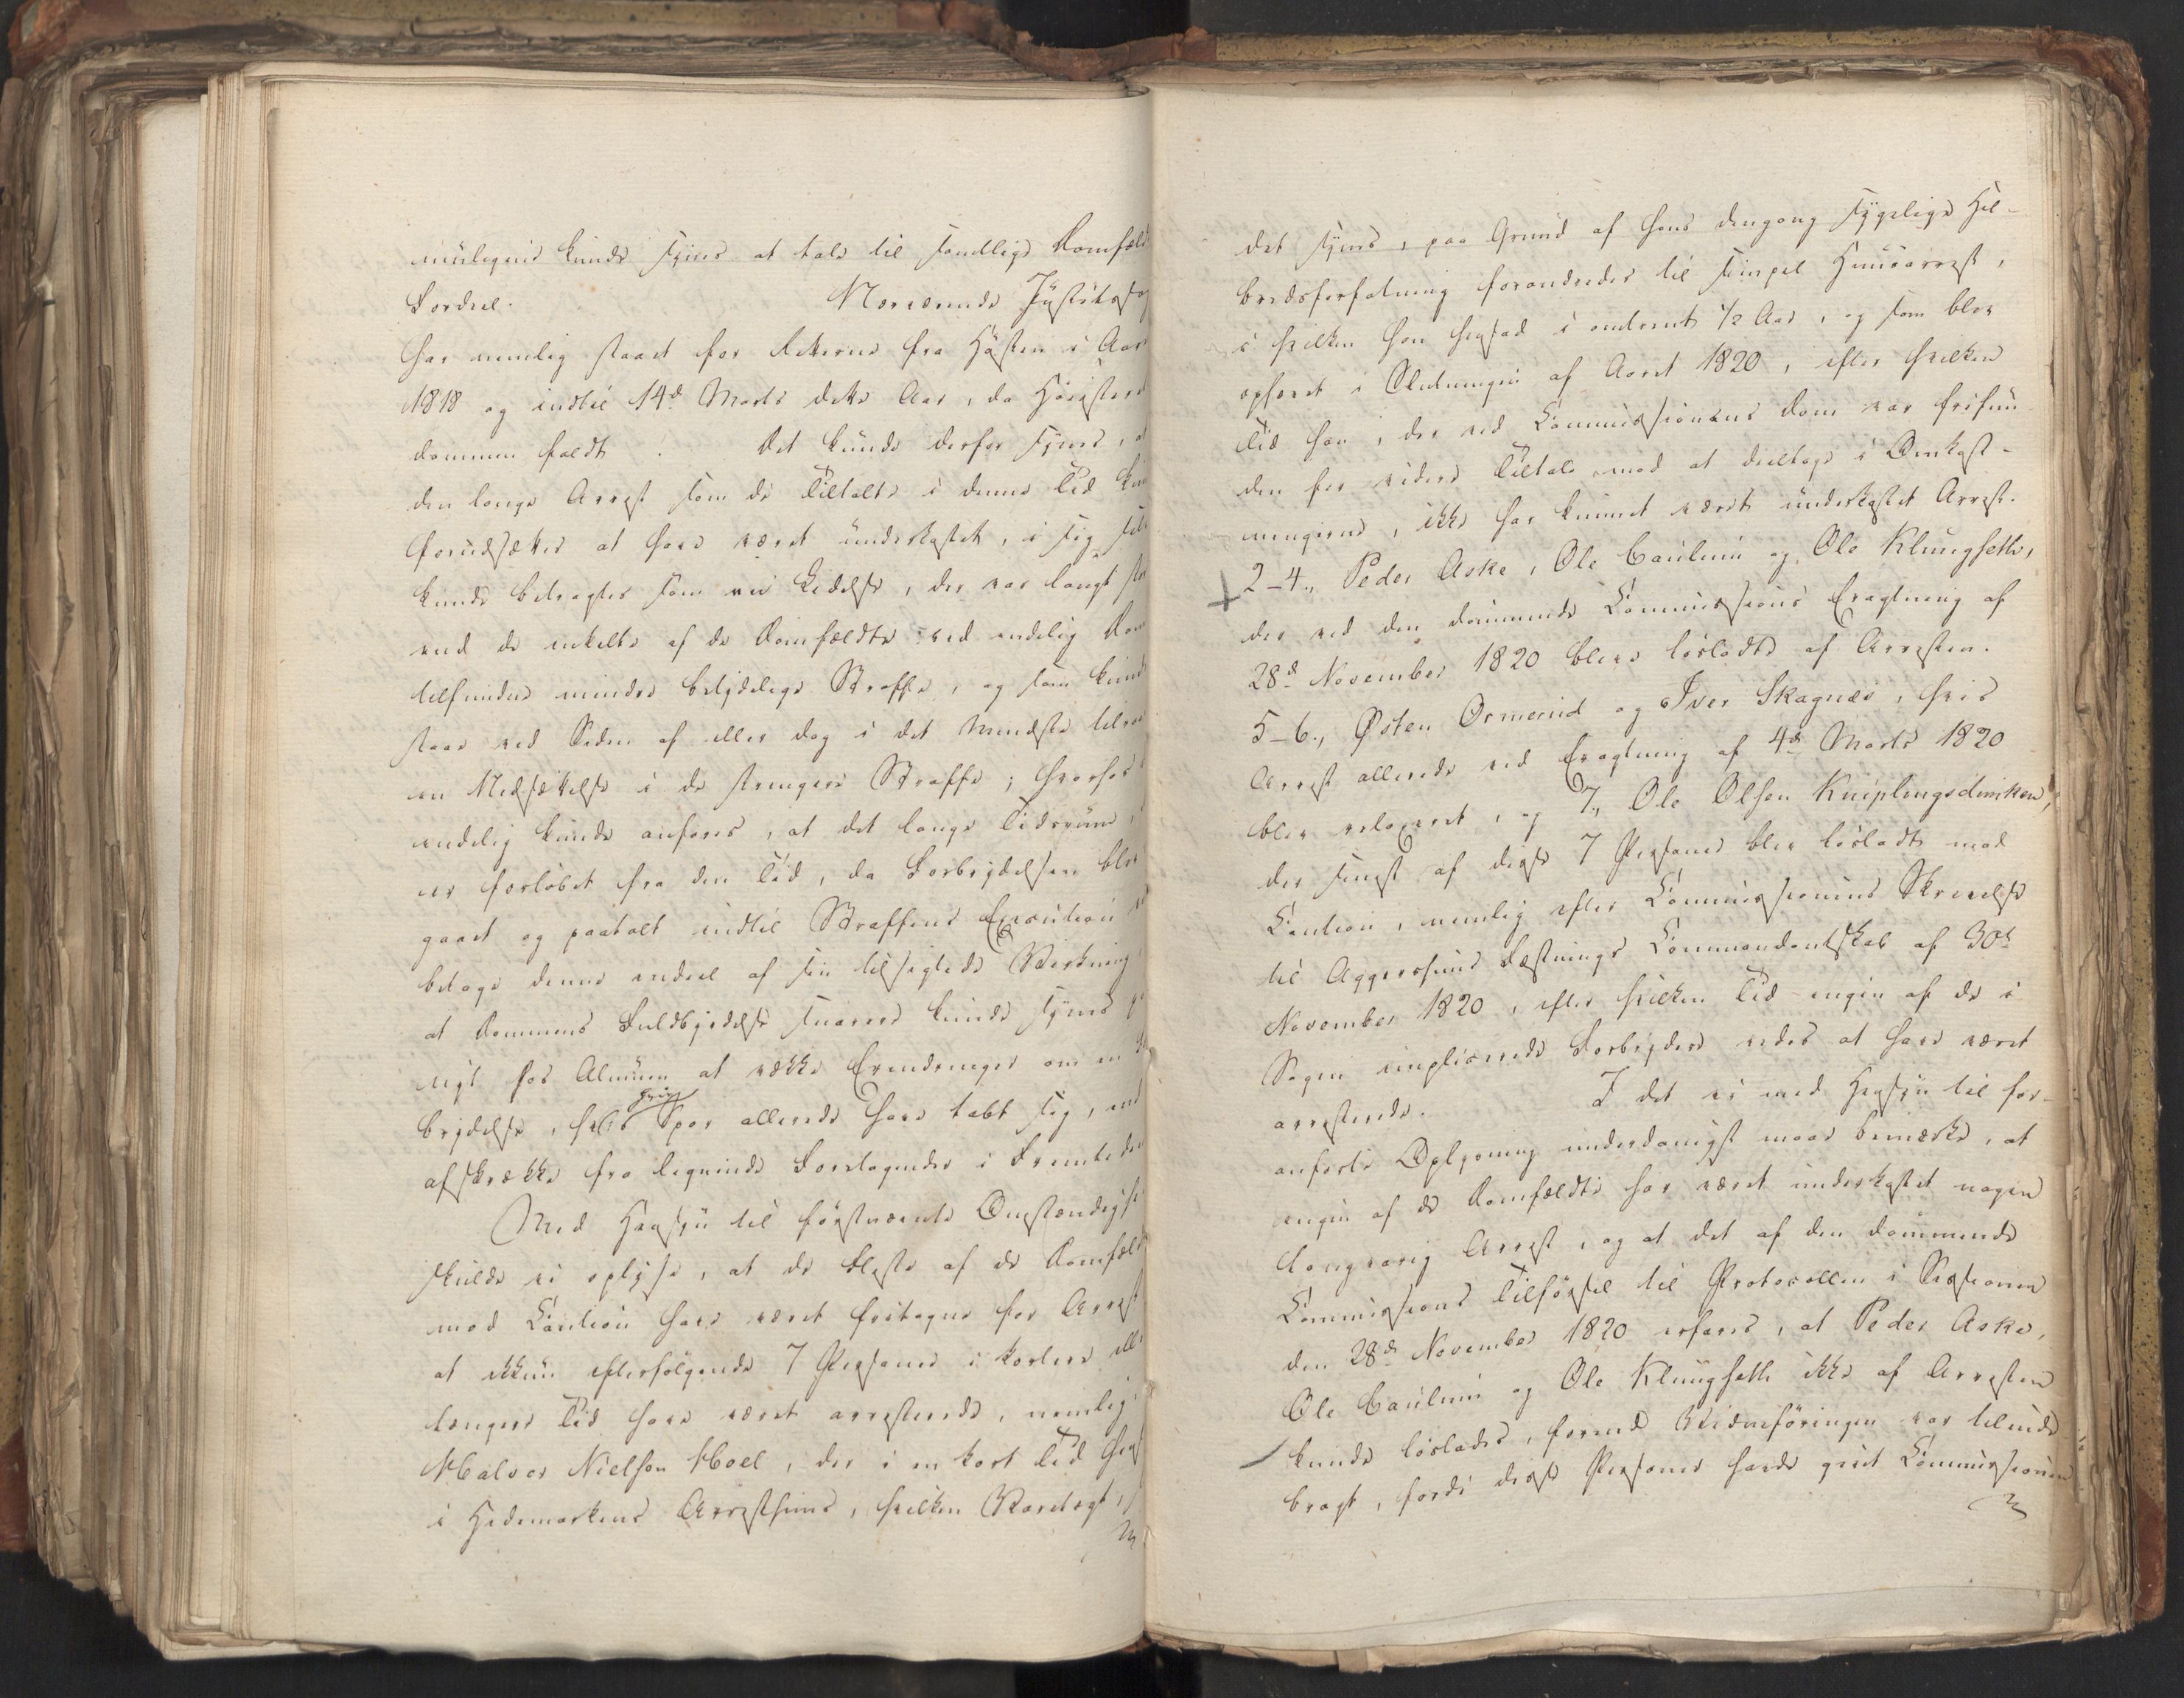 muligens kunde synes at tale til samtlige Domfæld
Fordeel. Nærværende Justitssag
har nemlig staaet for Retterne fra Høsten i Aar
1818 og indtil 14d Marts dette Aar, da Høiesterets
dommen faldt. Det kunde derfor synes, at
den lange Arrest som de Tiltalte i denne Tid kun
forudsættes at have været underkastet, i sig selv
kunde betragtes som en Lidelse, der var langt stør
end de enkelte af de Domfældte ved endelig Dom
tilfundne mindre betydelige Straffe, og som kunde
staae ved Siden af eller dog i det Mindste tilveie
en Nedsættelse i de strengere Straffe; hvorhos
endelig kunde anføres, at det lange Tidsrum,
er forløbet fra den Tid, da Forbrydelsen blev
gaaet og paatalt indtil Straffens Execution
betage denne endeel af sin tilsigtede Virkning
at Dommens Fuldbyrdelse snarere kunde synes
eigt hos Almuen at vække Erindringer om en For
brydelse, hvis Spor allerede have tabt sig, end
afskrække fra lignende Foretagender i Fremtiden
Med Hensyn til førstnævnte Omstændighe
skulde vi oplyse, at de Fleste af de Domfæld
mod Caution have været fritagne for Arrest
at ikkun efterfølgende 7 Personer i kortere eller
længere Tid have været arresterede, nemlig:
Halvor Nielsen Hoel, der i en kort Tid hen
i Hedemarkens Arresthuus, hvilken Varetægt,
det synes, paa Grund af hans dengang sygelige Hel-
bredsforfatning forandredes til simpel Huusarrest,
i hvilken han hensad i omtrent 1/2 Aar, og som blev
ophævet i Slutningen af Aaret 1820, efter hvilken
Tid han, der ved Commissionens Dom var frifun-
den for videre Tiltale mod at deeltage i Omkost-
ningerne, ikke har kunnet været underkastet Arrest.
2-4., Peder Aske, Ole Caulum og Ole Klungseth,
der ved den dømmende Commissions Eragtning af
28d November 1820 bleve løsladte af Arresten.
5-6., Østen Ormerud og Iver Skagnæs, hvis
Arrest allerede ved Eragtning af 4d Marts 1820
blev relaxeret, og 7., Ole Olsen Kniplingsdimken,
der sinest af disse 7 Personer blev løsladt mod
Caution, nemlig efter Commissionens Skrivelse
til Aggershuus Fæstnings Commandantskab af 30d
November 1820, efter hvilken Tid ingen af de i
Sagen implicerede Forbrydere vides at have været
arresterede. I det vi med Hensyn til for-
anførte Oplysning underdanigst maae bemærke, at
ingen af de Domfældte har været underkastet nogen
langvarig Arrest, og at det af den dømmende
Commissions Tilførsel til Protocollen i Sessionen
den 28d November 1820 erfares, at Peder Aske,
Ole Caulum og Ole Klungseth ikke af Arresten
kunde løslades, forend Vidneføringen var tilende
bragt, fordi disse Personer havde givet Commissionen